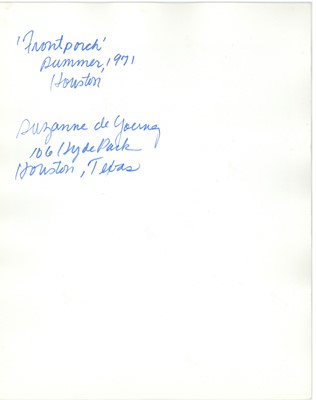 'Frontporch'
Summer, 1971
Houston
Suzanne de Young
106 Hyde Park
Houston, Texas